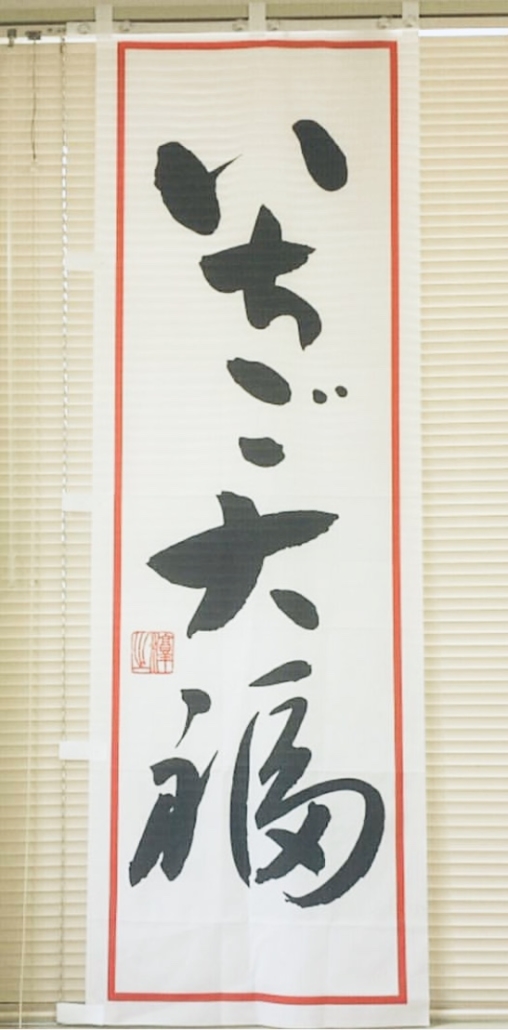 いちご大福